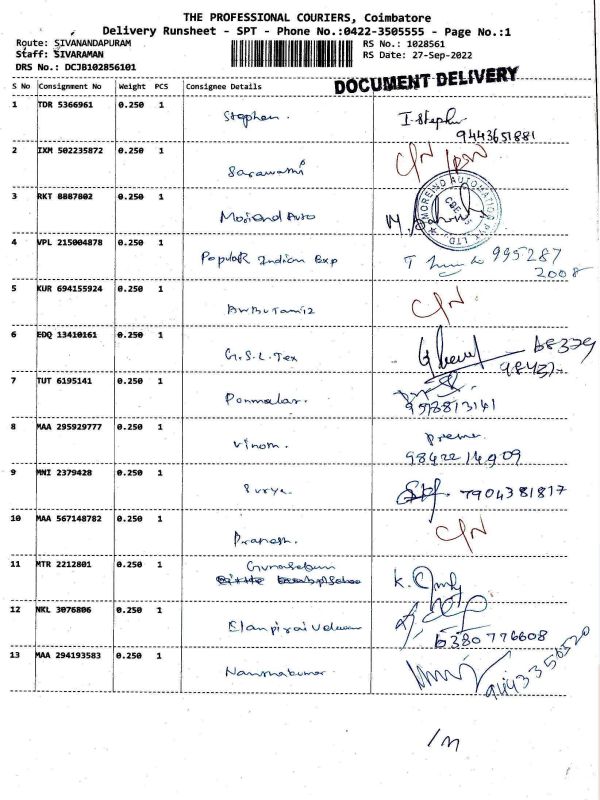 THE PROFESSIONAL COURIERS, Coimbatore
Delivery Runsheet - SPT - Phone No.:0422-3505555 - Page No.:1
Route: SIVANANDAPURAM RS No.: 1028561
Staff: SIVARAMAN RS Date: 27-Sep-2022
DRS No.: DCJB102856101
DOCUMENT DELIVERY
S No Consignment No Weight PCS Consignee Details
1 TDR 5366961 0.250 1
Stephen. I. Stephen
9443651881
2 IXM 502235872 0.250 1
Saraswathi C/N
3 RKT 8887802 0.250 1
MOREIND AUTOMATION PVT. LTD.
4 VPL 215004878 0.250 1
Popular Indian Exp 995287
2008
5 KUR 694155924 0.250 1
C/N
6 EDQ 13410161 0.250 1
G.S.L. Tex
7 TUT 6195141 0.250 1
Ponmalar. 9578813141
8 MAA 295929777 0.250 1
Vinoth. Prema
9842214909
9 MNI 2379428 0.250 1
Surya. 7904381817
10 MAA 567148782 0.250 1
Pranesh. C/N
11 MTR 2212801 0.250 1
K.
12 NKL 3076806 0.250 1
6380776608
13 MAA 294193583 0.250 1
Nanthakumar